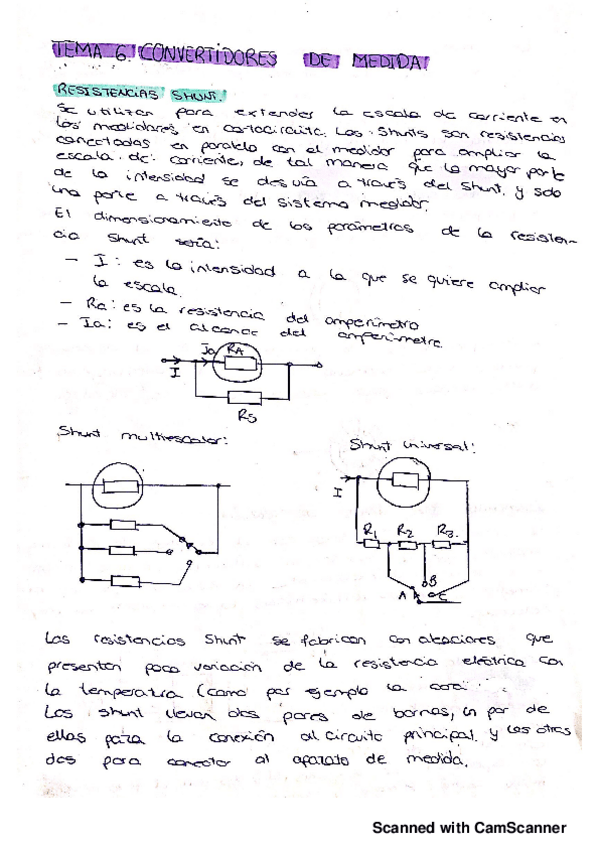 TEMA 6. CONVERTIDORES DE MEDIDA
RESISTENCIAS SHUNT.
Se utilizan para extender la escala de corriente en
los medidores en cortocircuito. Los shunts son resistencias
conectadas en paralelo con el medidor para ampliar la
escala de corriente, de tal manera que la mayor parte
de la intensidad se desvía a través del shunt y solo
una parte a través del sistema medidor.
El dimensionamiento de los parámetros de la resisten-
cia shunt sería:
- I: es la intensidad a la que se quiere ampliar
la escala.
- Ra: es la resistencia del amperímetro
- Ia: es el alcance del amperímetro
Ia RA
I
RS
Shunt multiescalar:
Shunt universal:
I
R1 R2 R3.
B
A C
Las resistencias Shunt se fabrican con aleaciones que
presentan poca variación de la resistencia eléctrica con
la temperatura (como por ejemplo la
Los shunt llevan dos pares de bornas, un par de
ellas para la conexión al circuito principal y las otras
dos para conectar al aparato de medida.
Scanned with CamScanner